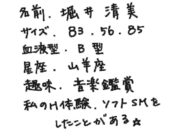 名前．堀井清美
サイズ．83．56．85
血液型．B型
星座．山羊座
趣味．音楽鑑賞
私のH体験．ソフトSMを
したことがある☆